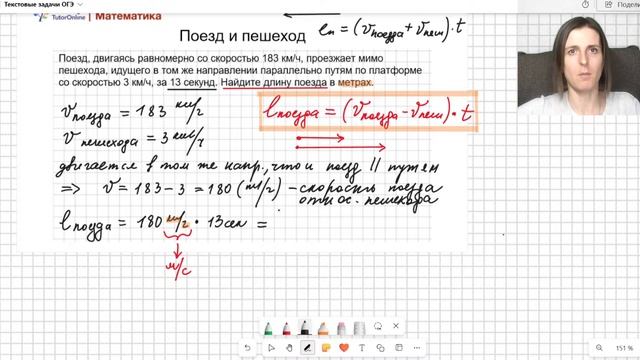 Текстовые задачи ОГЭ
Поделиться
TutorOnline | Математика
Поезд и пешеход
ℓп = (Vпоезда + Vпеш) · t
Поезд, двигаясь равномерно со скоростью 183 км/ч, проезжает мимо
пешехода, идущего в том же направлении параллельно путям по платформе
со скоростью 3 км/ч, за 13 секунд. Найдите длину поезда в метрах.
Vпоезда = 183 км/ч
ℓпоезда = (Vпоезда - Vпеш) · t
Vпешехода = 3 км/ч
двигается в том же напр., что и поезд || путям
=> V = 183 - 3 = 180 (км/ч) - скорость поезда
относ. пешехода
ℓпоезда = 180 км/ч · 13 сек =
м/с
151 %